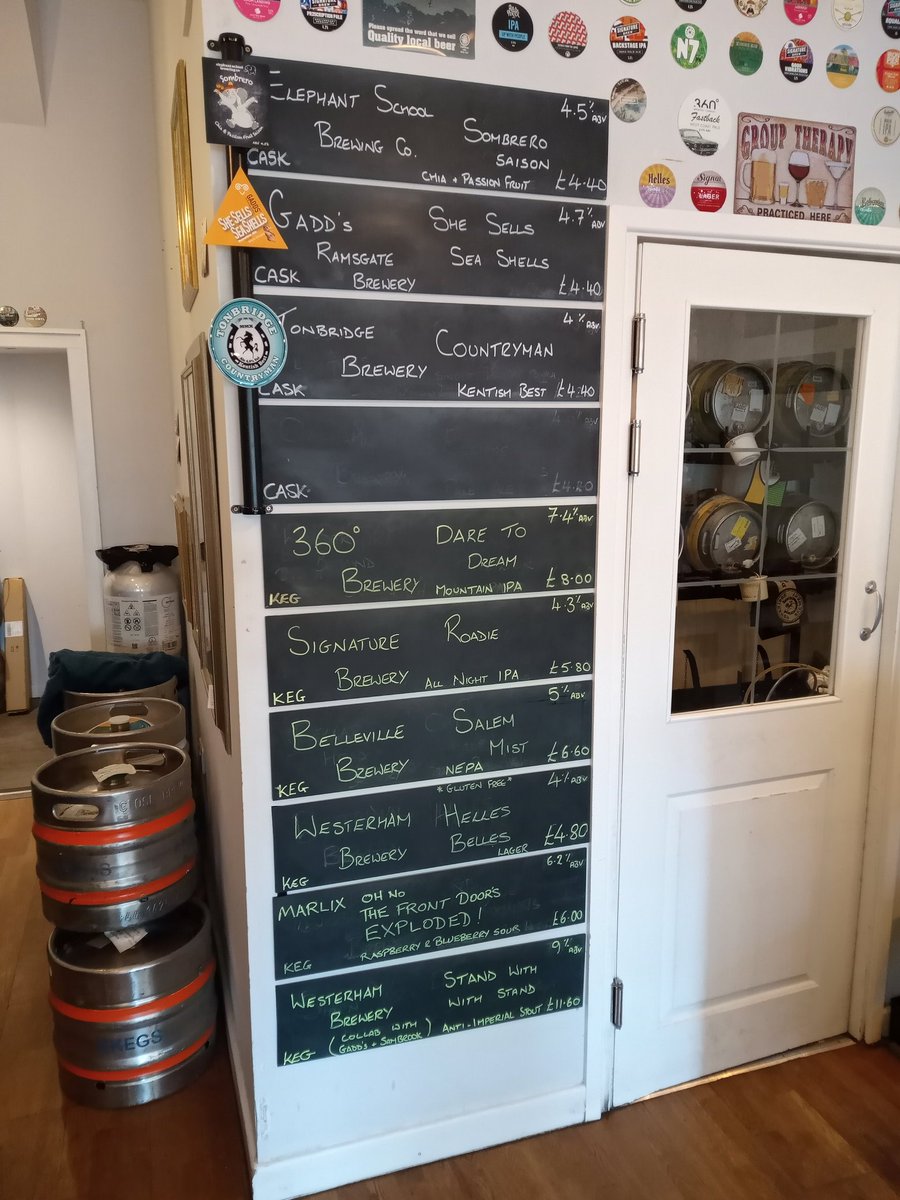 Please spread the word that we sell
Quality local beer
IPA
BACKSTAGE IPA
N7
GOOD VIBRATIONS
360°
Fastback
Helles
Signal
LAGER
GROUP THERAPY
PRACTICED HERE
Sombrero
ELEPHANT SCHOOL 4.5% ABV
BREWING CO. SOMBRERO
SAISON
CASK CHIA + PASSION FRUIT £4.40
SHE SELLS
SEA SHELLS
GADD'S SHE SELLS 4.7% ABV
RAMSGATE SEA SHELLS
CASK BREWERY £4.40
TONBRIDGE
COUNTRYMAN
TONBRIDGE 4% ABV
BREWERY COUNTRYMAN
CASK KENTISH BEST £4.40
CASK £4.20
360° DARE TO 7.4% ABV
DREAM
BREWERY MOUNTAIN IPA £8.00
KEG
SIGNATURE ROADIE 4.3% ABV
BREWERY ALL NIGHT IPA £5.80
KEG
BELLEVILLE SALEM 5% ABV
MIST £6.60
BREWERY NEPA
KEG
*GLUTEN FREE* 4% ABV
WESTERHAM HELLES
BREWERY BELLES £4.80
LAGER
KEG
MARLIX OH NO 6.2% ABV
THE FRONT DOOR'S
EXPLODED! £6.00
KEG RASPBERRY & BLUEBERRY SOUR
WESTERHAM STAND WITH 9% ABV
BREWERY WITH STAND
KEG (COLLAB WITH GADD'S + SAMBROOK) ANTI-IMPERIAL STOUT £11.60
KEGS